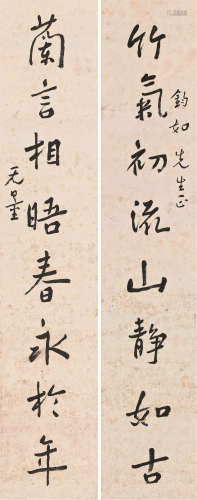 竹氣初流山靜如古
鈞如先生正
蘭言相晤春永於年
无量